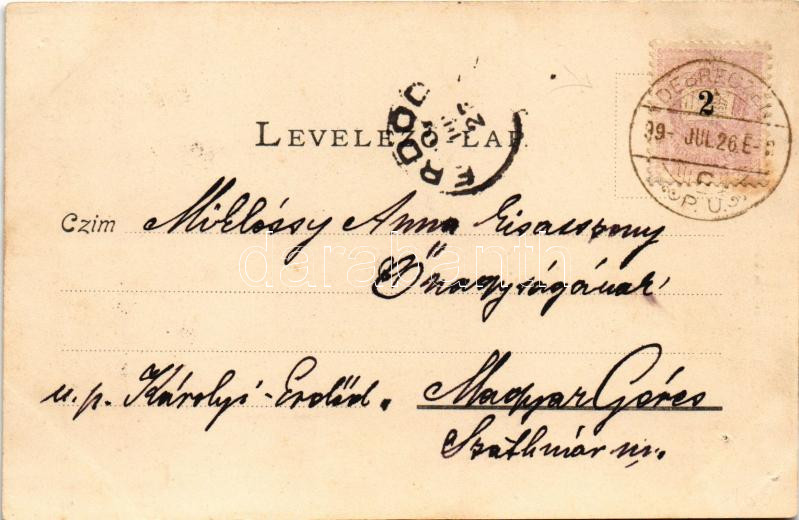 DEBRECZEN
2
99- JUL.26.E-
C
P.U.
ERDŐD
LEVELEZ LAP.
Czim Miklóssy Anna kisasszony
Őnagyságának
darabanth
u. p. Károlyi-Erdőd. Magyar Géres
Szathmár m.